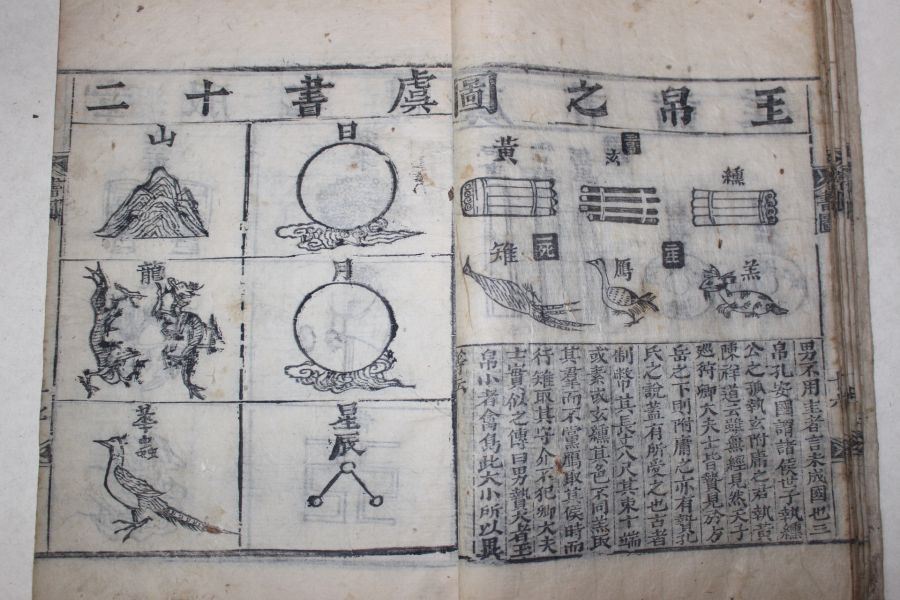 王帛之圖
纁
玄
三帛
黃
羔
二生
鴈
一死
雉
男不用圭者言未成國也三
帛孔安國謂諸侯世子執纁
公之孤執玄附庸之君執黃
陳祥道云雖無經見然天子
廵符卿大夫士皆贄見於方
岳之下則附庸之亦有執孔
氏之說蓋有所受之也古者
制幣其長丈八尺其束十端
或素或玄纁其色不同羔取
其羣而不黨鴈取其侯時而
行雉取其守介不犯卿大夫
士實似之傳曰男贄大者王
帛小者禽鳥此大小所以異
虞書十二
日
月
星辰
山
龍
華蟲